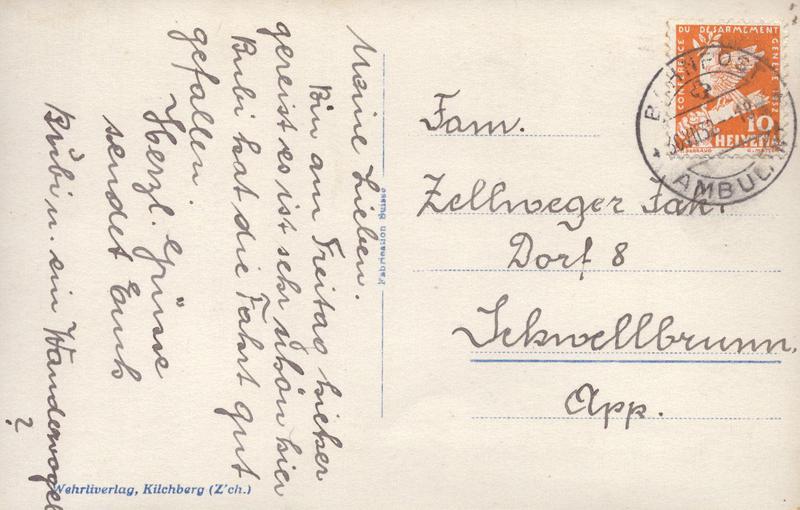 Meine Lieben.
Bin am Freitag hieher
gereist es ist sehr schön hier
Bubi hat die Fahrt gut
gefallen.
Herzl. Grüsse
sendet Euch
Bubi u. ein Wandervogel
?
Fabrication Suisse
Wehrliverlag, Kilchberg (Z'ch.)
CONFERENCE DU DESARMEMENT GENEVE 1932
10
HELVETIA
BAHNPOST
AMBULANT
Fam.
Zellweger Jak.
Dorf 8
Schwellbrunn,
App.